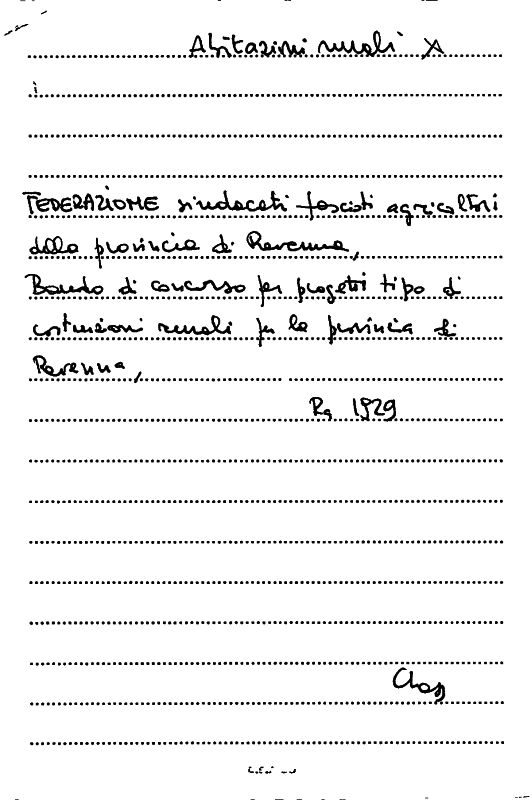 Abitazioni rurali X
FEDERAZIONE sindacati fascisti agricoltori
della provincia di Ravenna,
Bando di concorso per progetti tipo di
costruzioni rurali per la provincia di
Ravenna,
Ra 1929
Class